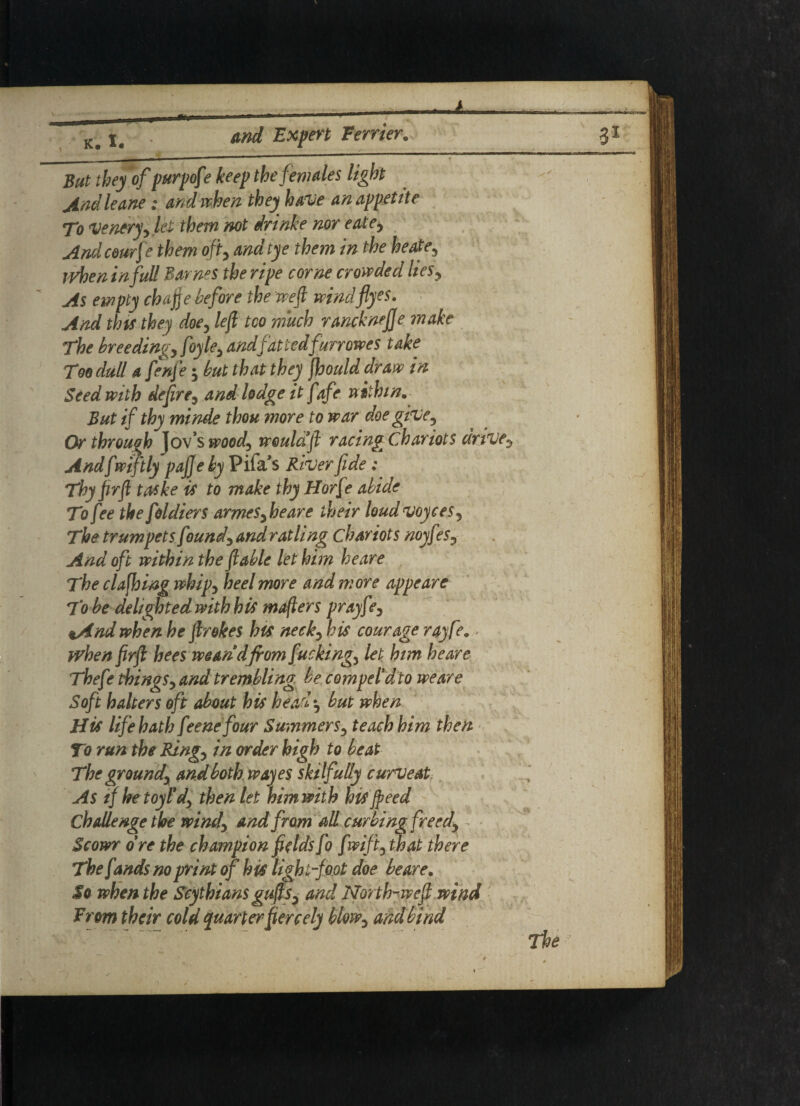 K. I. and Expert Ferrier. 31
But they of purpose keep the females light
And leane : and when they have an appetite
To venery, let them not drinke nor eate,
And courſe them oft, and tye them in the heate,
When in full Barnes the ripe corne crowded lies,
As empty chaffe before the weſt wind flyes.
And this they doe, leſt too much ranckneſſe make
The breeding, ſoyle, and fatted furrowes take
Too dull a ſenſe ; but that they ſhould draw in
Seed with deſire, and lodge it ſafe within.
But if thy minde thou more to war doe give,
Or through Jov's wood, would'ſt racing Chariots drive,
And ſwiftly paſſe by Piſa's River ſide :
Thy firſt taske is to make thy Horſe abide
To ſee the ſoldiers armes, heare their loud voyces,
The trumpets ſound, and ratling Chariots noyſes,
And oft within the ſtable let him heare
The claſhing whip, heel more and more appeare
To be delighted with his maſters prayſe,
And when he ſtrokes his neck, his courage rayſe.
When firſt hees wean'd from ſucking, let him heare
Theſe things, and trembling be compel'd to weare
Soft halters oft about his head ; but when
His life hath ſeene four Summers, teach him then
To run the Ring, in order high to beat
The ground, and both wayes skilfully curveat.
As if he toyl'd, then let him with his ſpeed
Challenge the wind, and from all curbing freed,
Scowr o're the champion fields ſo ſwift, that there
The ſands no print of his light-foot doe beare.
So when the Scythians guſts, and North-weſt wind
From their cold quarter fiercely blow, and bind
The